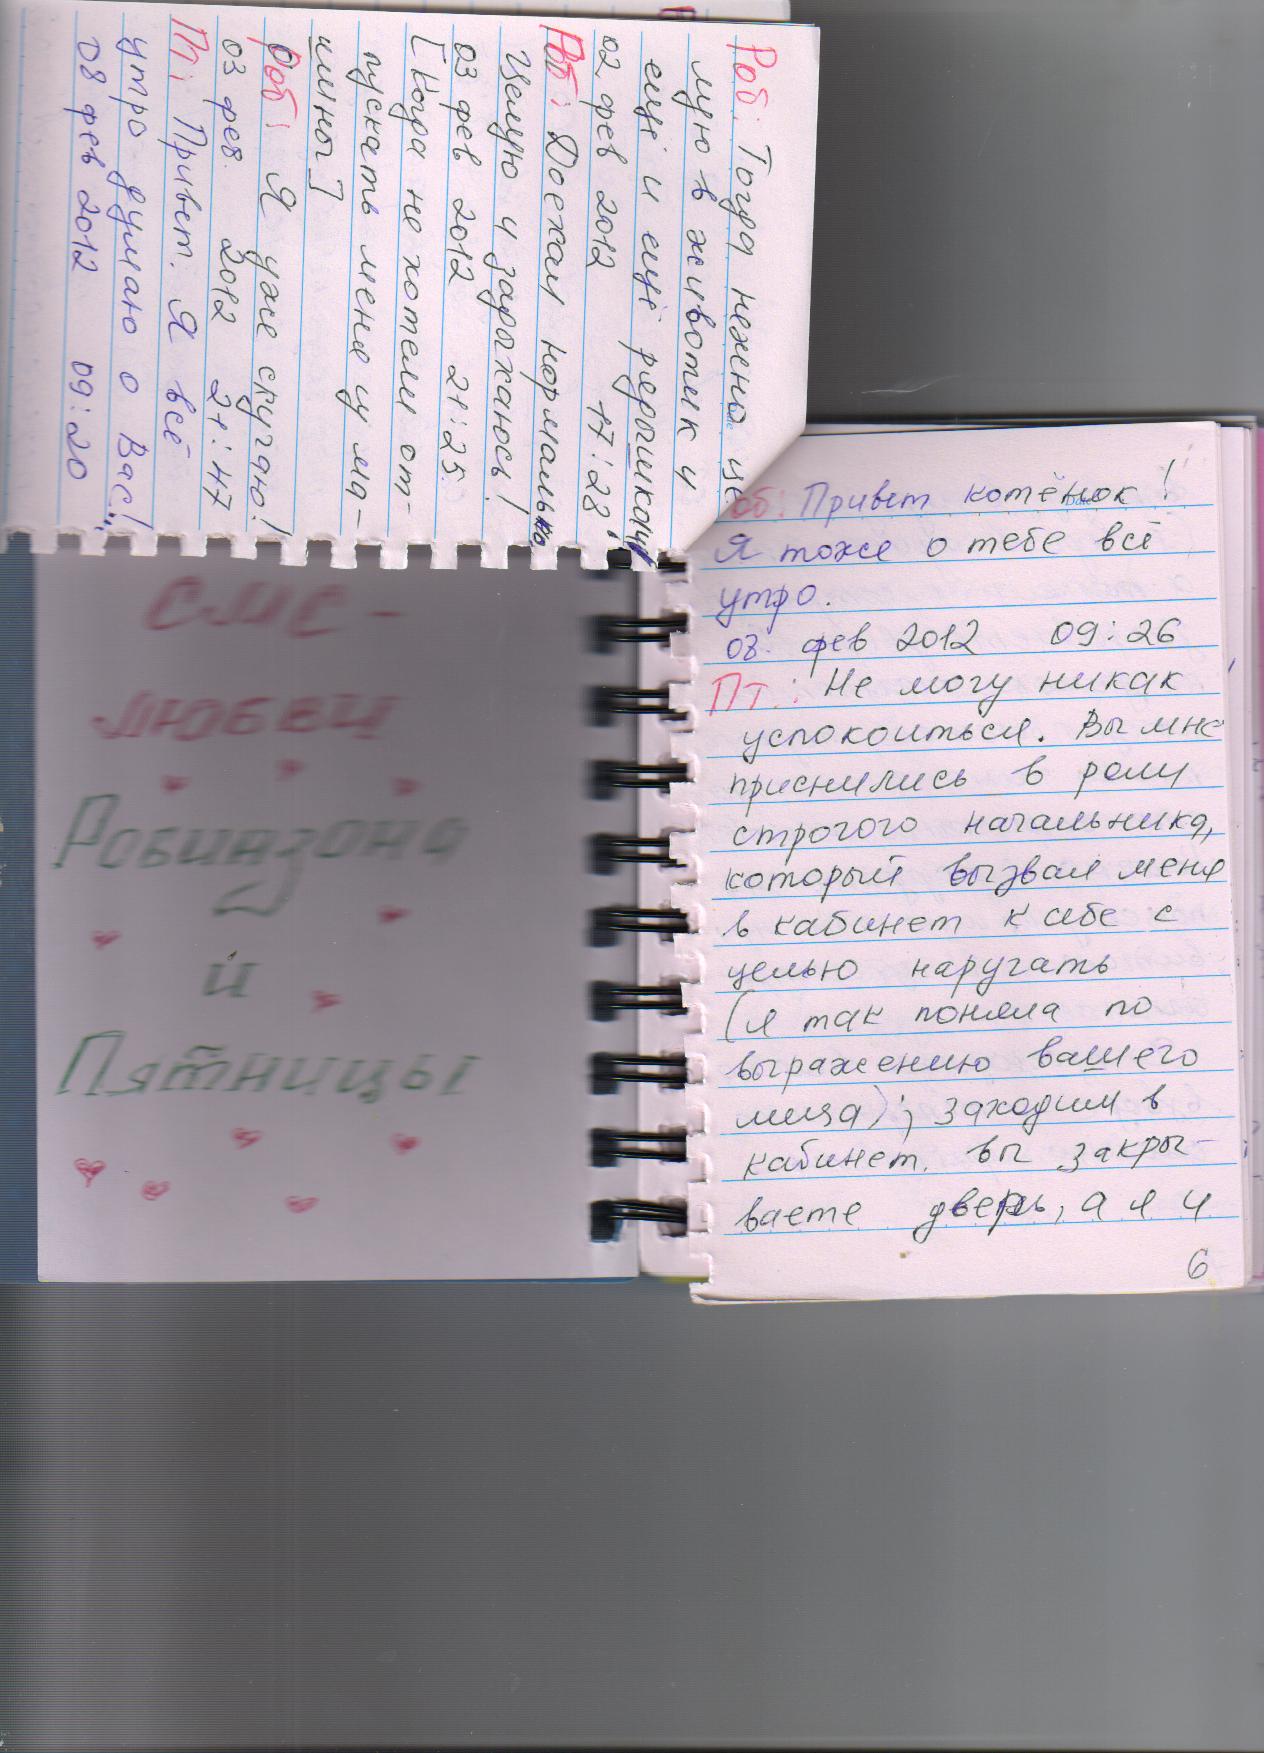 Роб: Тогда нежно це
лую в животик и
ещё и ещё рёрышком
02 фев 2012 17:28
Роб: Доехал нормально,
Целую и задыхаюсь!
03 фев 2012 21:25
[Когда не хотели от-
пускать меня из ма-
шины]
Роб: Я уже скучаю!
03 фев. 2012 21:47
Пт: Привет. Я всё
утро думаю о Вас!...
08 фев 2012 09:20
СМС -
любви
Робинзона
и
Пятницы
об: Привет котёнок!
Я тоже о тебе всё
утро.
08. фев 2012 09:26
Пт.: Не могу никак
успокоиться. Вы мне
приснились в роли
строгого начальника,
который вызвал меня
в кабинет к себе с
целью наругать
(я так поняла по
выражению вашего
лица); заходим в
кабинет, вы закры-
ваете дверь, а я и
6